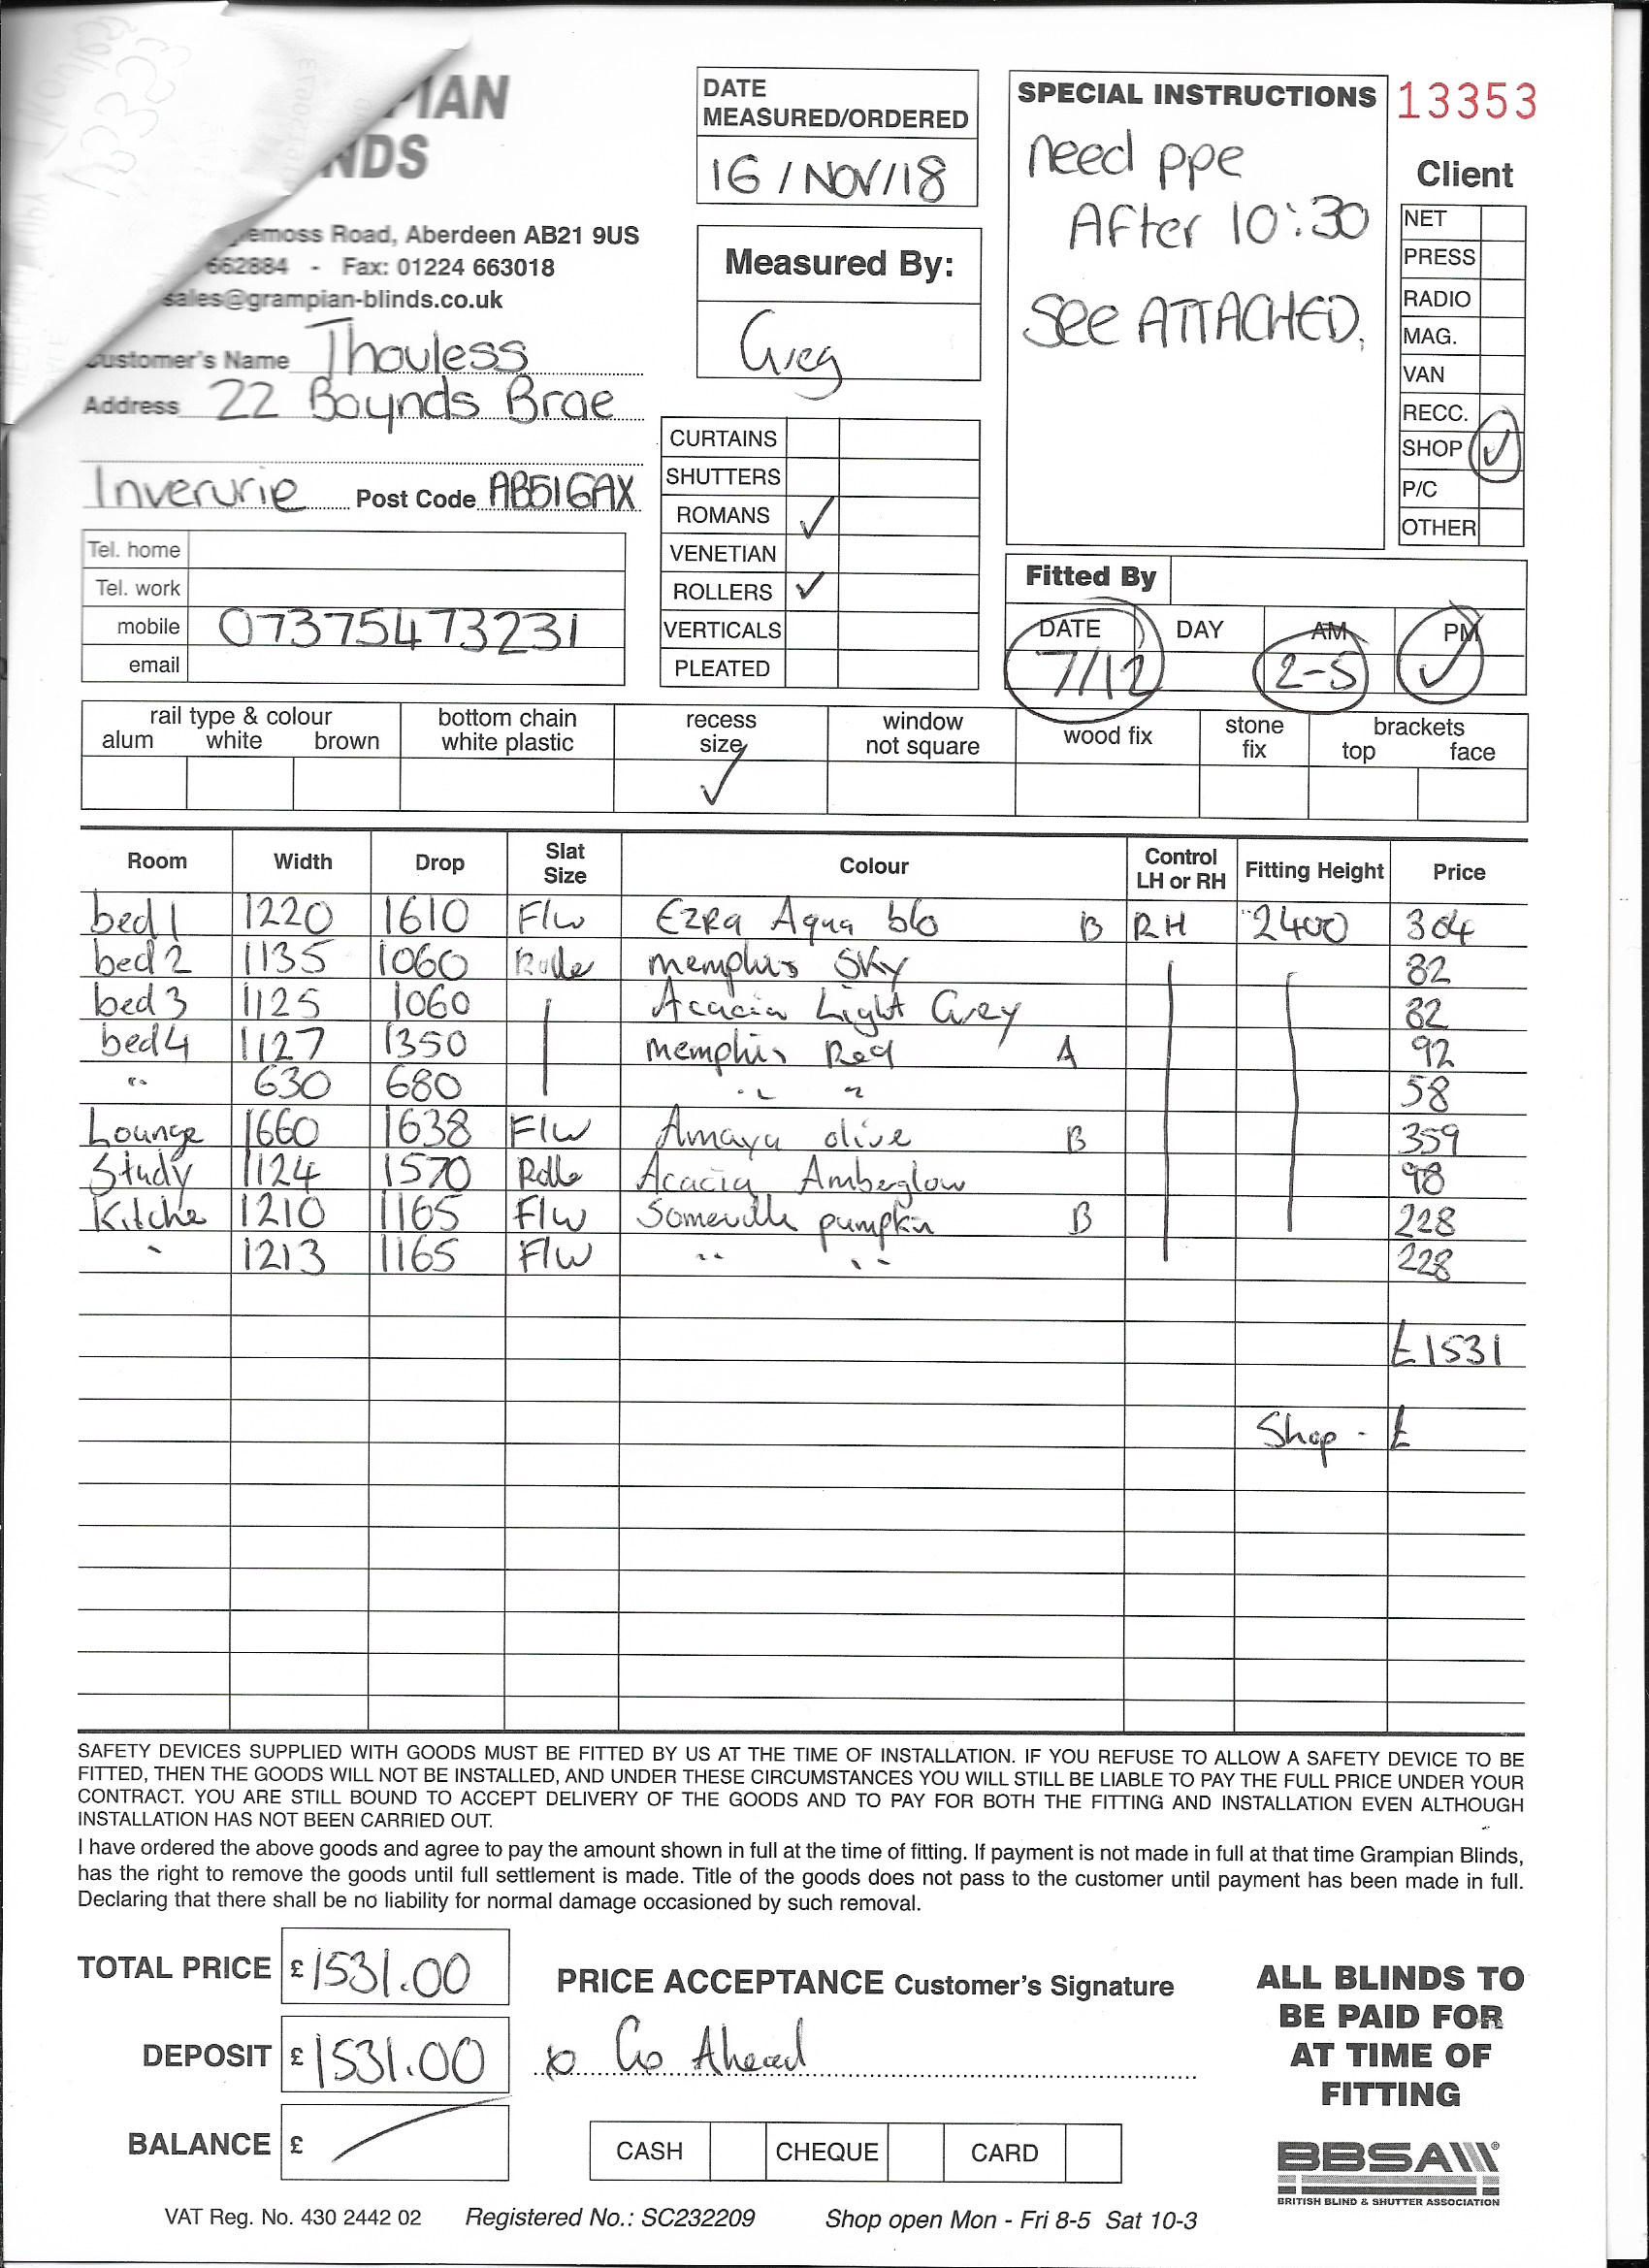 PIAN
NDS
emoss Road, Aberdeen AB21 9US
662884 - Fax: 01224 663018
sales@grampian-blinds.co.uk
Customer's Name Thouless
Address 22 Boynds Brae
Inverurie Post Code AB51 6AX
Tel. home
Tel. work
mobile 07375473231
email
DATE
MEASURED/ORDERED
16/NOV/18
Measured By:
Greg
CURTAINS
SHUTTERS
ROMANS ✓
VENETIAN
ROLLERS ✓
VERTICALS
PLEATED
SPECIAL INSTRUCTIONS
need ppe
After 10:30
See ATTACHED.
13353
Client
NET
PRESS
RADIO
MAG.
VAN
RECC.
SHOP ✓
P/C
OTHER
Fitted By
DATE DAY AM PM
7/12 2-5 ✓
rail type & colour bottom chain recess window wood fix stone brackets
alum white brown white plastic size not square fix top face
✓
Room Width Drop Slat Size Colour Control LH or RH Fitting Height Price
bed 1 1220 1610 F/w Ezra Aqua b/o B RH 2400 304
bed 2 1135 1060 Rolle memphis Sky 82
bed 3 1125 1060 Acacia Light Grey 82
bed 4 1127 1350 memphis Red A 92
" 630 680 " " 58
Lounge 1660 1638 F/W Amaya olive B 359
Study 1124 1570 Rolle Acacia Amberglow 98
Kitche 1210 1165 F/W Someville pumpkin B 228
" 1213 1165 F/W " " 228
£1531
Shop - £
SAFETY DEVICES SUPPLIED WITH GOODS MUST BE FITTED BY US AT THE TIME OF INSTALLATION. IF YOU REFUSE TO ALLOW A SAFETY DEVICE TO BE
FITTED, THEN THE GOODS WILL NOT BE INSTALLED, AND UNDER THESE CIRCUMSTANCES YOU WILL STILL BE LIABLE TO PAY THE FULL PRICE UNDER YOUR
CONTRACT. YOU ARE STILL BOUND TO ACCEPT DELIVERY OF THE GOODS AND TO PAY FOR BOTH THE FITTING AND INSTALLATION EVEN ALTHOUGH
INSTALLATION HAS NOT BEEN CARRIED OUT.
I have ordered the above goods and agree to pay the amount shown in full at the time of fitting. If payment is not made in full at that time Grampian Blinds,
has the right to remove the goods until full settlement is made. Title of the goods does not pass to the customer until payment has been made in full.
Declaring that there shall be no liability for normal damage occasioned by such removal.
TOTAL PRICE £1531.00
DEPOSIT £1531.00
BALANCE £
PRICE ACCEPTANCE Customer's Signature
Go Ahead
CASH CHEQUE CARD
ALL BLINDS TO
BE PAID FOR
AT TIME OF
FITTING
BBSA
BRITISH BLIND & SHUTTER ASSOCIATION
VAT Reg. No. 430 2442 02 Registered No.: SC232209 Shop open Mon - Fri 8-5 Sat 10-3